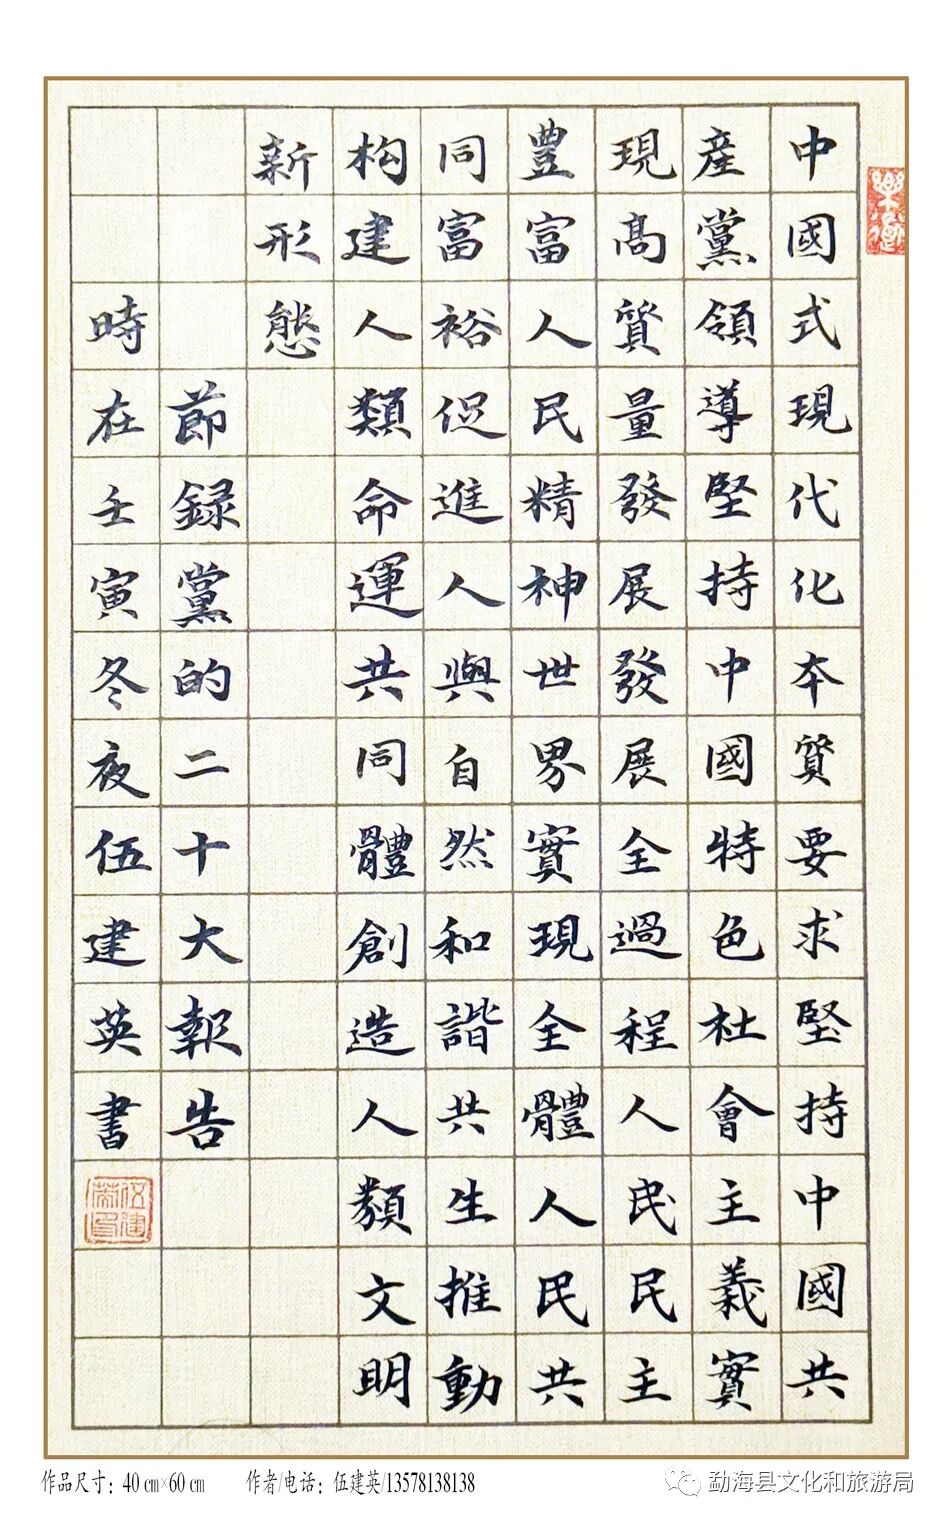 中國式現代化本質要求堅持中國共
産黨領導堅持中國特色社會主義實
現高質量發展發展全過程人民民主
豐富人民精神世界實現全體人民共
同富裕促進人與自然和諧共生推動
构建人類命運共同體創造人類文明
新形態
節録黨的二十大報告
時在壬寅冬夜伍建英書
作品尺寸：40㎝×60㎝ 作者/电话：伍建英/13578138138
勐海县文化和旅游局